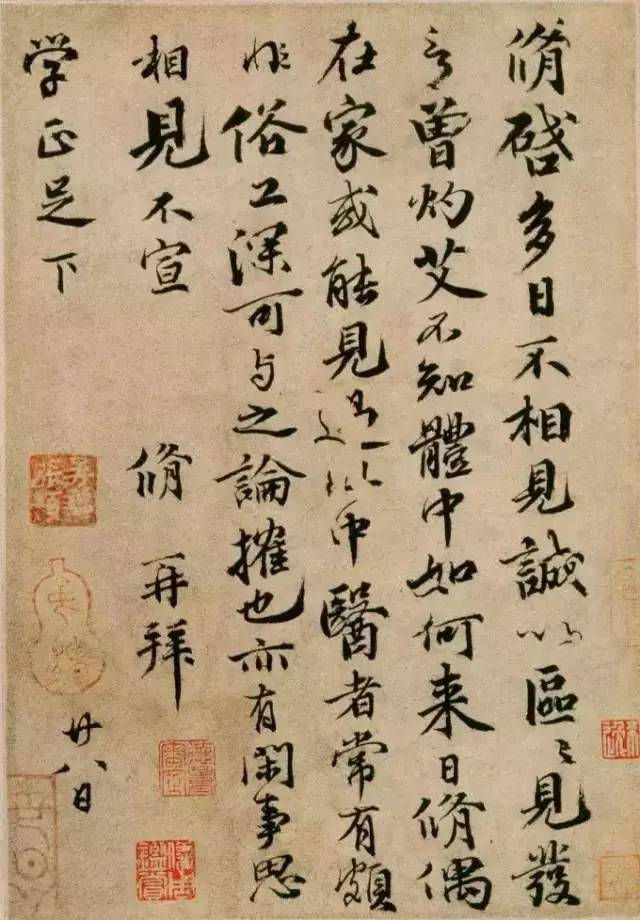 脩啓多日不相見誠以區〻見發
言曾灼艾不知體中如何来日脩偶
在家或能見過此中醫者常有頗
非俗工深可与之論搉也亦有閑事思
相見不宣　脩再拜
学正足下
廿八日